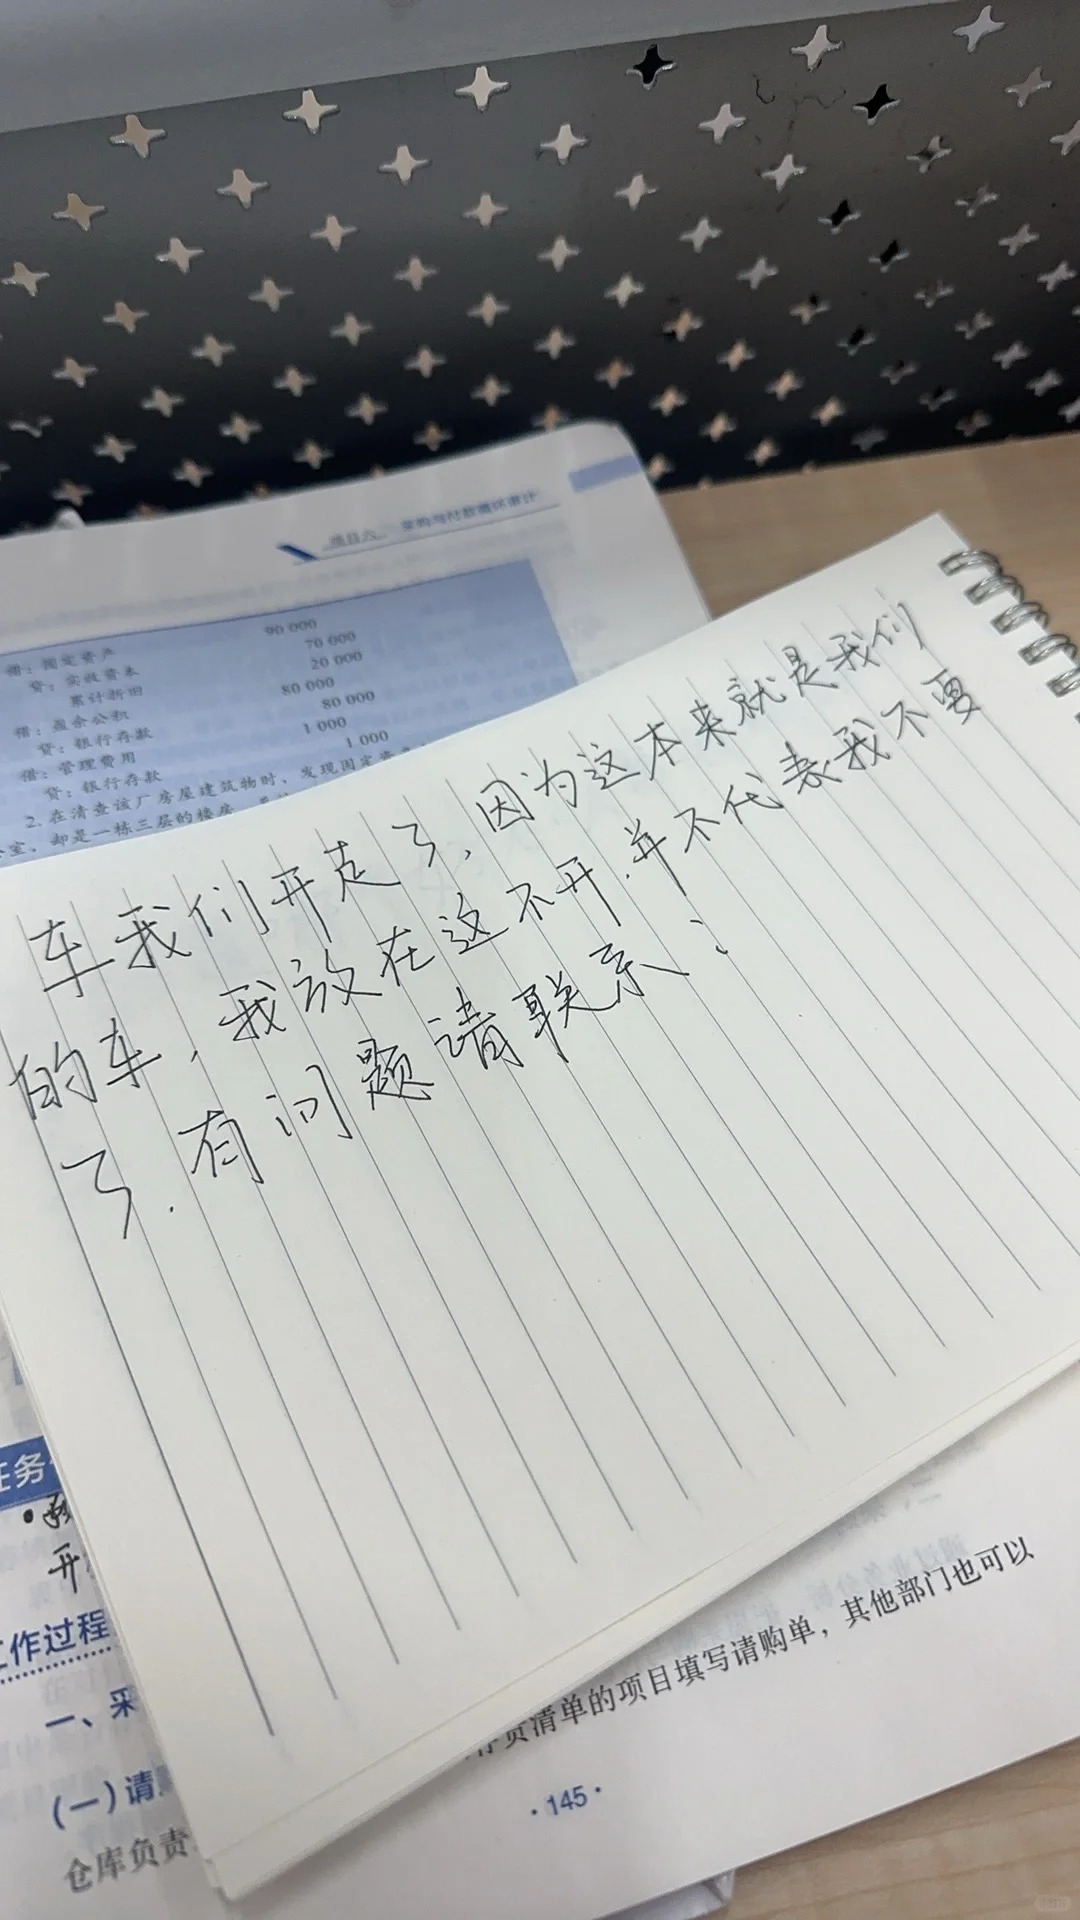 项目六 采购与付款循环审计
借：固定资产 90 000
贷：实收资本 70 000
累计折旧 20 000
借：盈余公积 80 000
贷：银行存款 80 000
借：管理费用 1 000
贷：银行存款 1 000
2. 在清查该厂房屋建筑物时、发现固定资
室、却是一栋三层的楼房
车我们开走了、因为这本来就是我们
的车，我放在这不开.并不代表我不要
了.有问题请联系：
任务
开
工作过程
一、采
(一) 请
清单的项目填写请购单，其他部门也可以
仓库负责
·145·